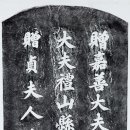 贈嘉善大夫
大夫禮山縣
贈貞夫人